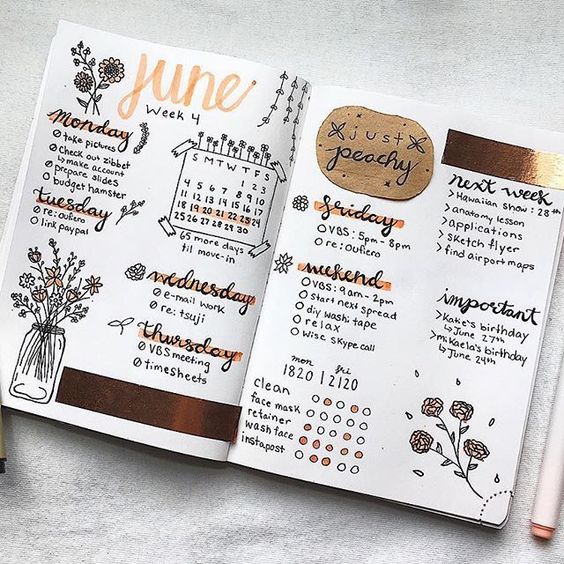 June
Week 4
Monday
take pictures
check out zibbet
↳ make account
prepare slides
budget hamster
Tuesday
re: oufiero
link paypal
S M T W T F S
1 2 3
4 5 6 7 8 9 10
11 12 13 14 15 16 17
18 19 20 21 22 23 24
25 26 27 28 29 30
65 more days
til move-in
wednesday
e-mail work
re: tsuji
thursday
VBS meeting
timesheets
just
peachy
friday
VBS: 5pm - 8pm
re: oufiero
weekend
VBS: 9am - 2pm
start next spread
diy washi tape
relax
wise skype call
mon fri
clean
face mask
retainer
wash face
instapost
next week
> Hawaiian show: 28th
> anatomy lesson
> applications
> sketch flyer
> find airport maps
important
> Kate's birthday
↳ June 27th
> mikaela's birthday
↳ June 24th